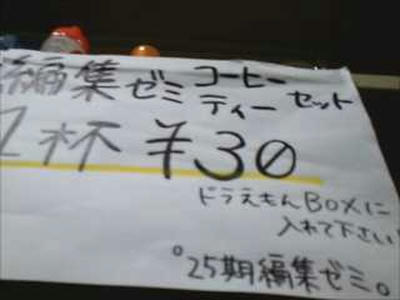 編集ゼミ コーヒー ティー セット
1杯 ¥30
ドラえもんBOXに
入れて下さい
°25期編集ゼミ。